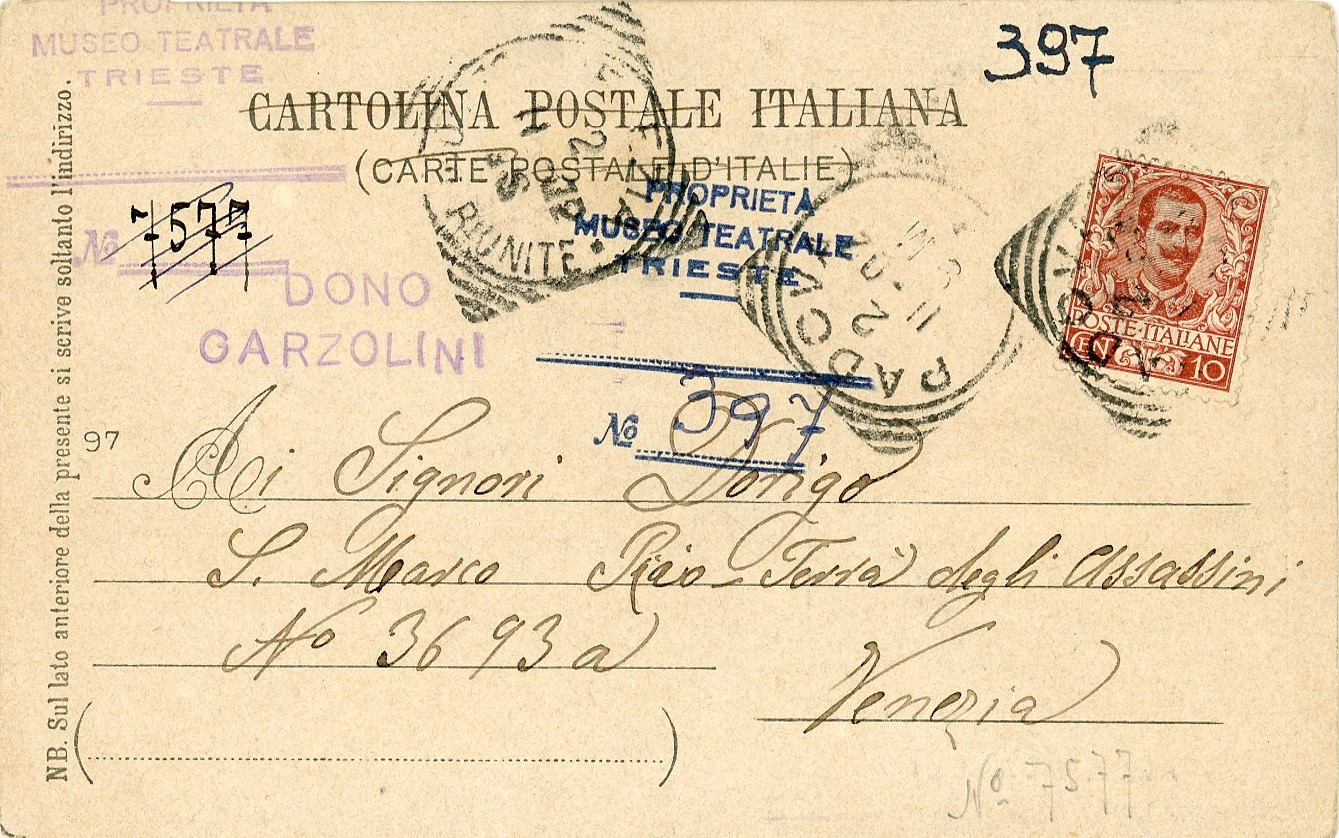 PROPRIETÀ
MUSEO TEATRALE
TRIESTE
397
CARTOLINA POSTALE ITALIANA
(CARTE POSTALE D'ITALIE)
RIUNITE
PROPRIETÀ
MUSEO TEATRALE
TRIESTE
PADOVA
POSTE·ITALIANE
CEN 10
No 7577
DONO
GARZOLINI
No 397
97
Ai Signori Dorigo
S. Marco Rio Terrà degli Assassini
No 3693a
Venezia
No 7577
NB. Sul lato anteriore della presente si scrive soltanto l'indirizzo.